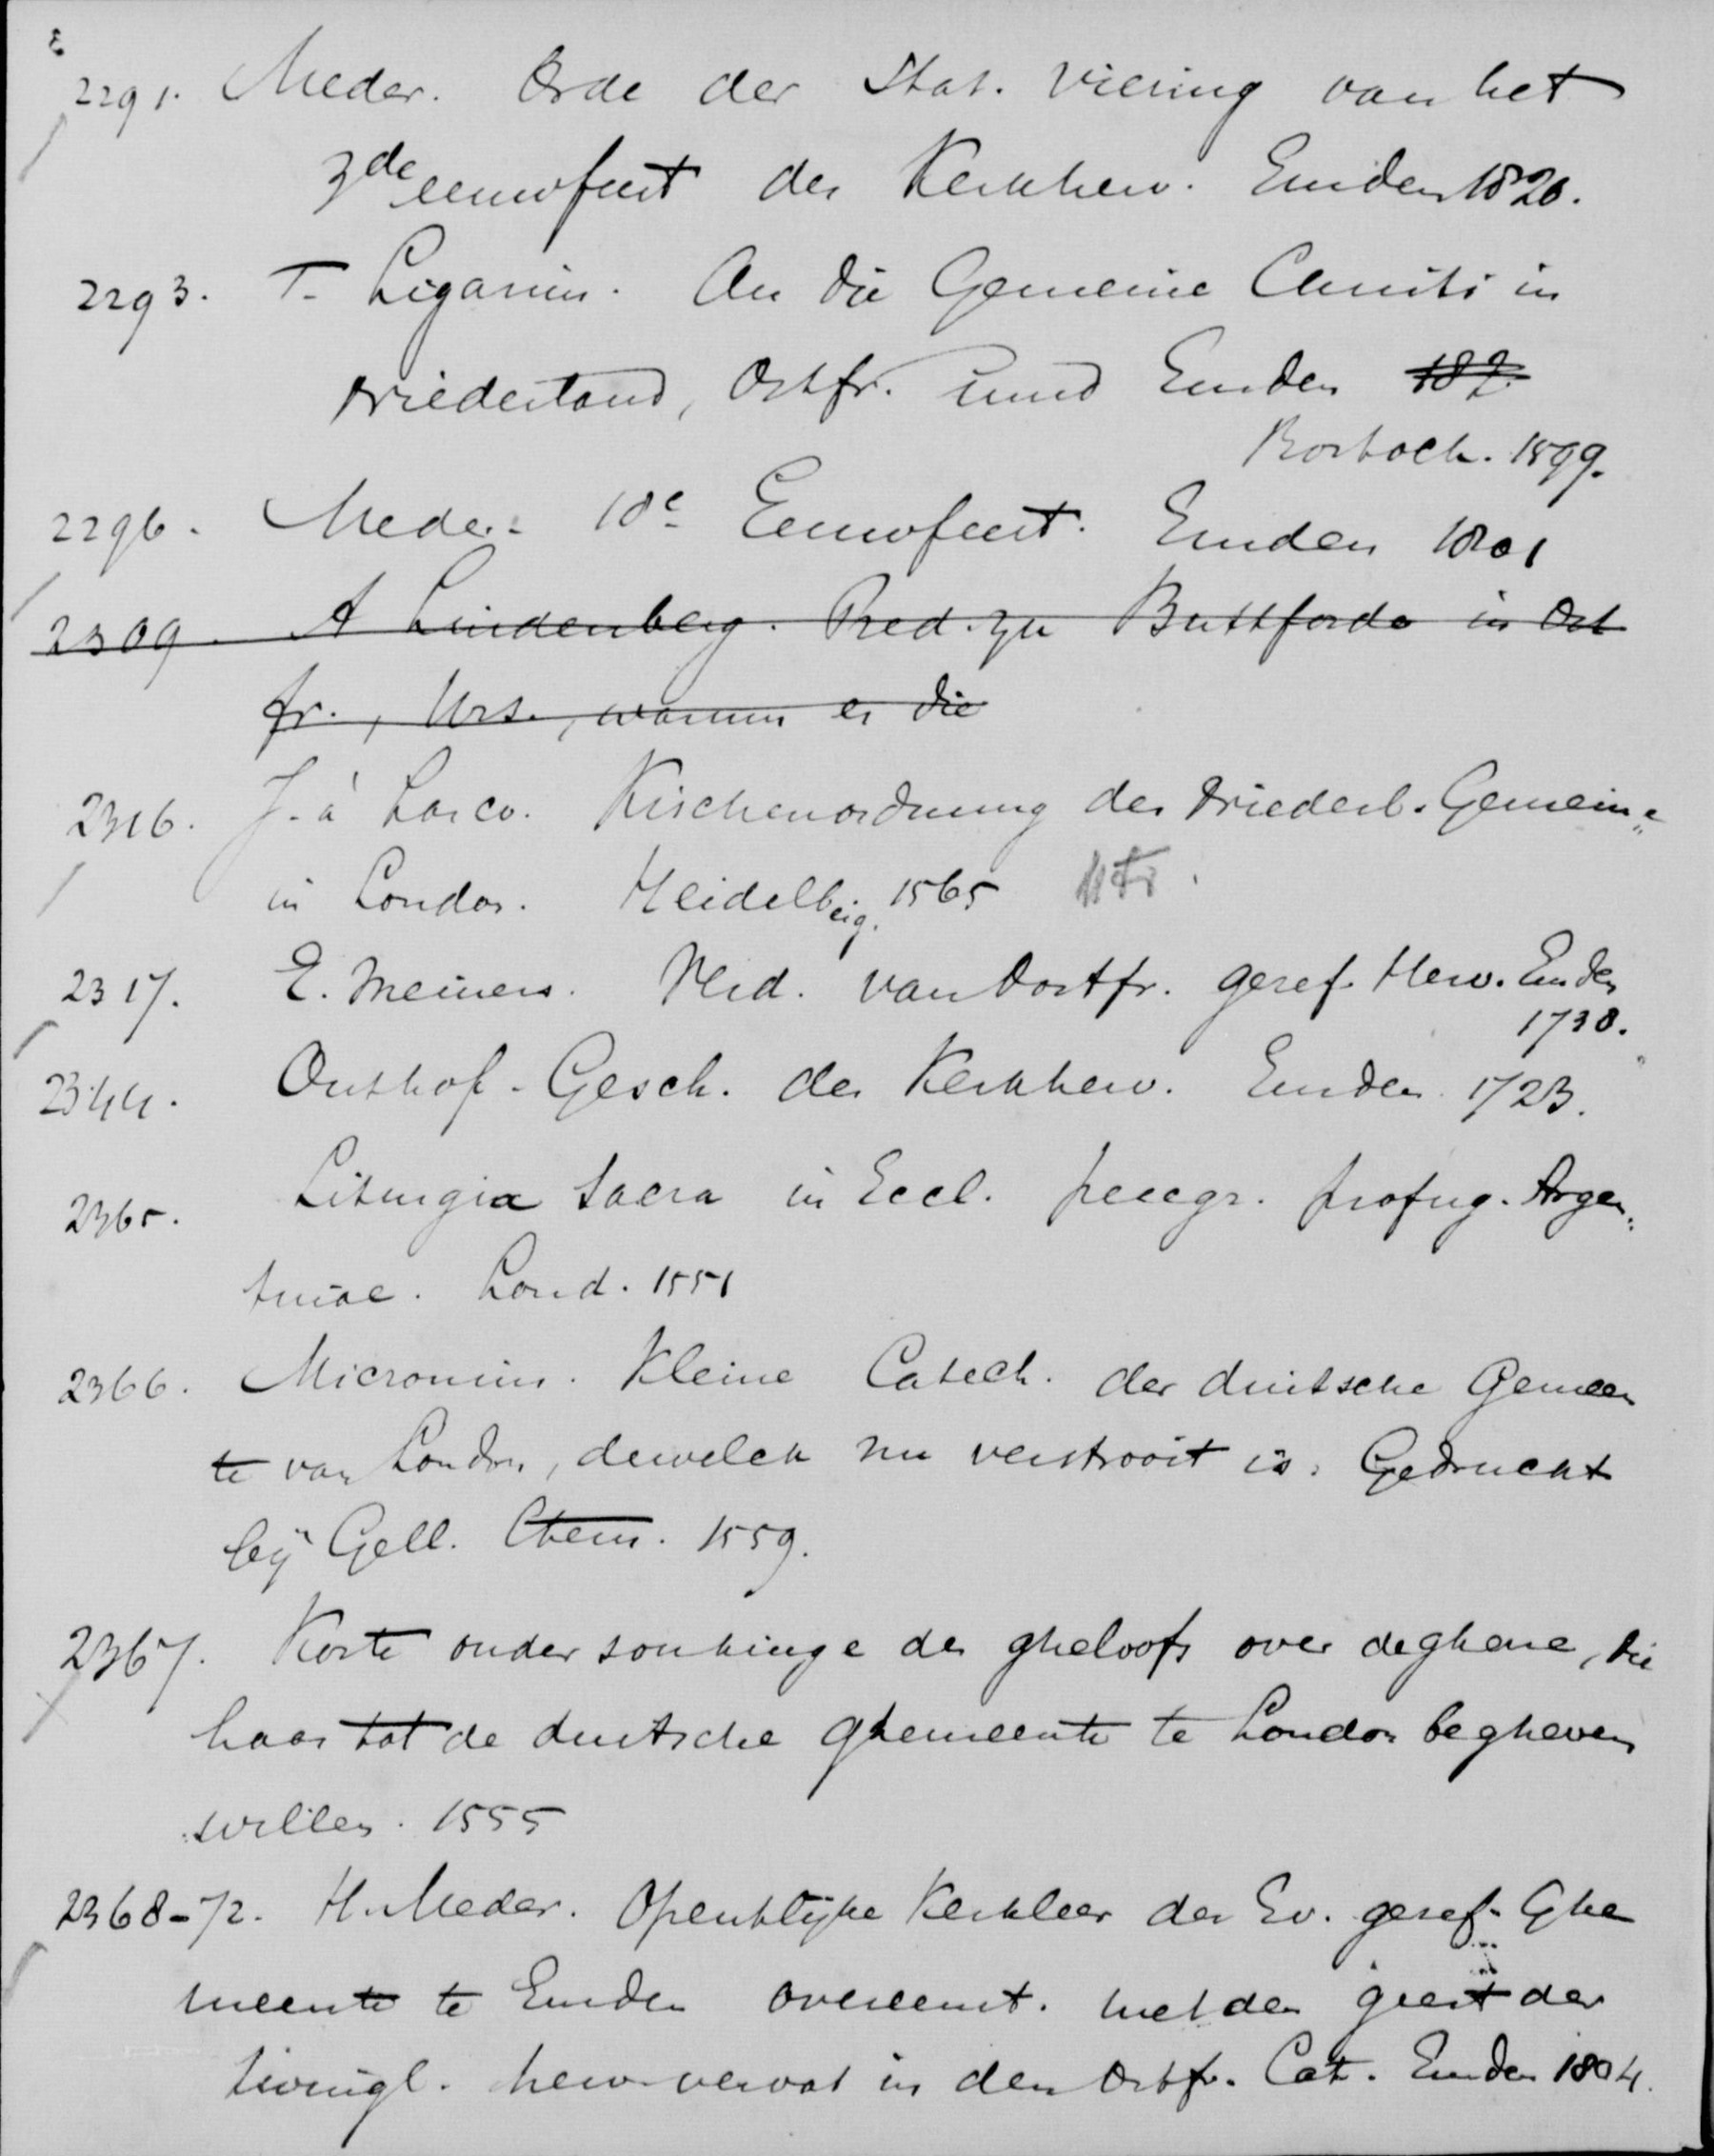 2291. Meder. Orde der Stat. viering van het
3de eeuwfeest der Kerkherv. Emden 1820.
2293. T. Ligarius. An die Gemeine Christi in
Niederland, Ostfr. und Emden 187
Rostock. 1599.
2296. Meder. 18e Eeuwfeest. Emden 1801
2309. A Lindenberg. Pred. zu Buttforde in Ost
fr., Urs., warum er die
2316. J. à Lasco. Kirchenordnung der Niederl. Gemein„e
in London. Heidelberg. 1565
2317. E. Meiners. Kerkgesch. van Oostfr. geref. Herv. Emden
1738.
2344. Outhof. Gesch. der Kerkherv. Emden 1723.
2365. Liturgia Sacra in Eccl. peregr. profug. Argen„
tinae. Lond. 1551
2366. Micronius. Kleine Catech. der duitsche Gemeen
te van London, dewelck nu verstrooit is. Gedruckt
bij Gell. Ctem. 1559.
2367. Korte ondersouckinge des gheloofs over deghene, die
haar tot de duitsche ghemeente te London begheven
willen. 1555
2368-72. H. Meder. Openhlijke Kerkleer der Ev. geref. Ghe
meente te Emden overeenst. met den geest der
zwingl. herv. vervat in den Ostfr. Cat. Emden 1804.